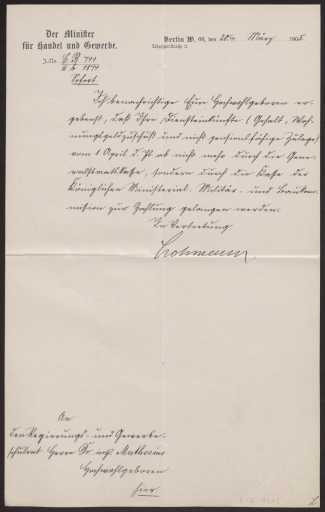 Der Minister
für Handel und Gewerbe.
Berlin W. 66, den 20. März 1905
Leipzigerstraße 2.
J.-Nr.
Sofort
Ich benachrichtige Euer Hochwohlgeboren er-
gebenst, daß Ihre Diensteinkünfte (Gehalt, Woh-
nungsgeldzuschuß und nicht pensionsfähige Zulage)
vom 1 April d. Js. ab nicht mehr durch die Gene-
ralstaatskasse, sondern durch die Kasse der
Königlichen Ministerial- Militär- und Baukom-
mission zur Zahlung gelangen werden.
In Vertretung
Lohmann
An
den Regierungs- und Gewerbe-
schulrat Herrn Dr. ing. Muthesius
Hochwohlgeboren
hier.